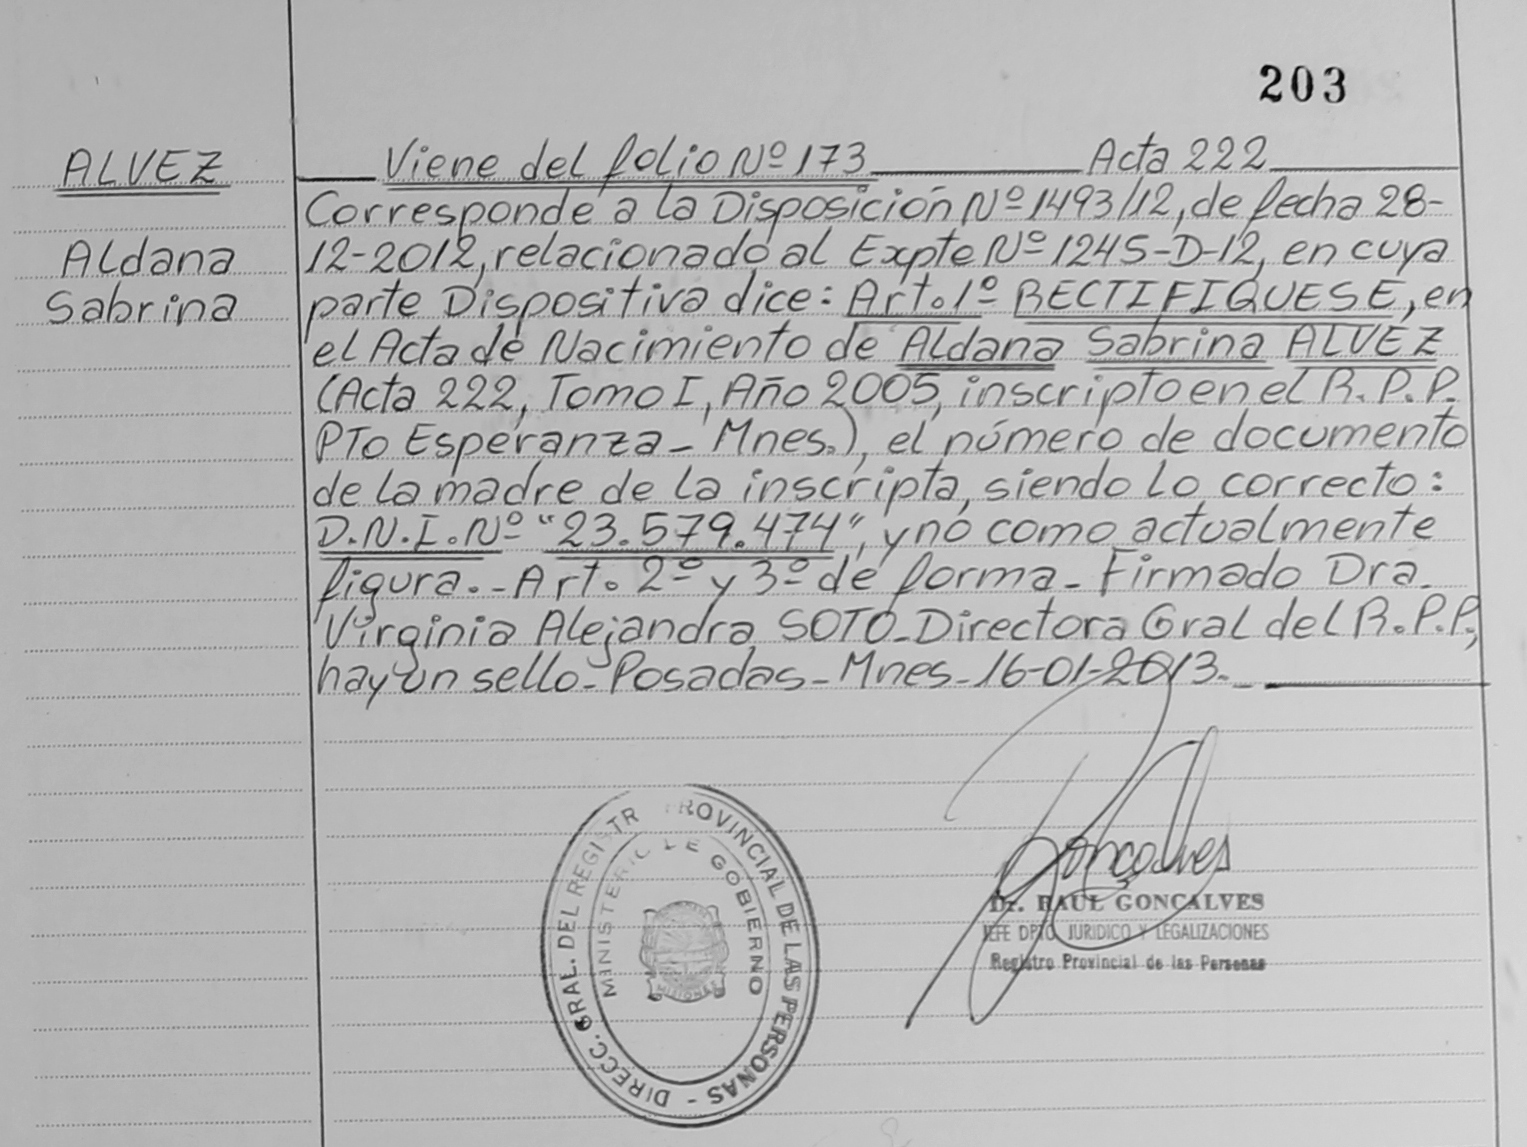 203
ALVEZ
Aldana
Sabrina
Viene del folio Nº 173 Acta 222
Corresponde a la Disposición Nº 1493/12, de fecha 28-
12-2012, relacionado al Expte Nº 1245-D-12, en cuya
parte Dispositiva dice: Art. 1º RECTIFIQUESE, en
el Acta de Nacimiento de Aldana Sabrina ALVEZ
(Acta 222, Tomo I, Año 2005, inscripto en el R.P.P.
PTO Esperanza - Mnes.), el número de documento
de la madre de la inscripta, siendo lo correcto:
D.N.I. Nº "23.579.474", y no como actualmente
figura.- Art. 2º y 3º de forma - Firmado Dra.
Virginia Alejandra SOTO - Directora Gral del R.P.P,
hay un sello - Posadas - Mnes - 16-01-2013.-
DIRECC. GRAL. DEL REGISTR PROVINCIAL DE LAS PERSONAS -
MINISTERIO DE GOBIERNO
MISIONES
Gonçalves
Dr. RAUL GONCALVES
JEFE DPTO JURIDICO Y LEGALIZACIONES
Registro Provincial de las Personas